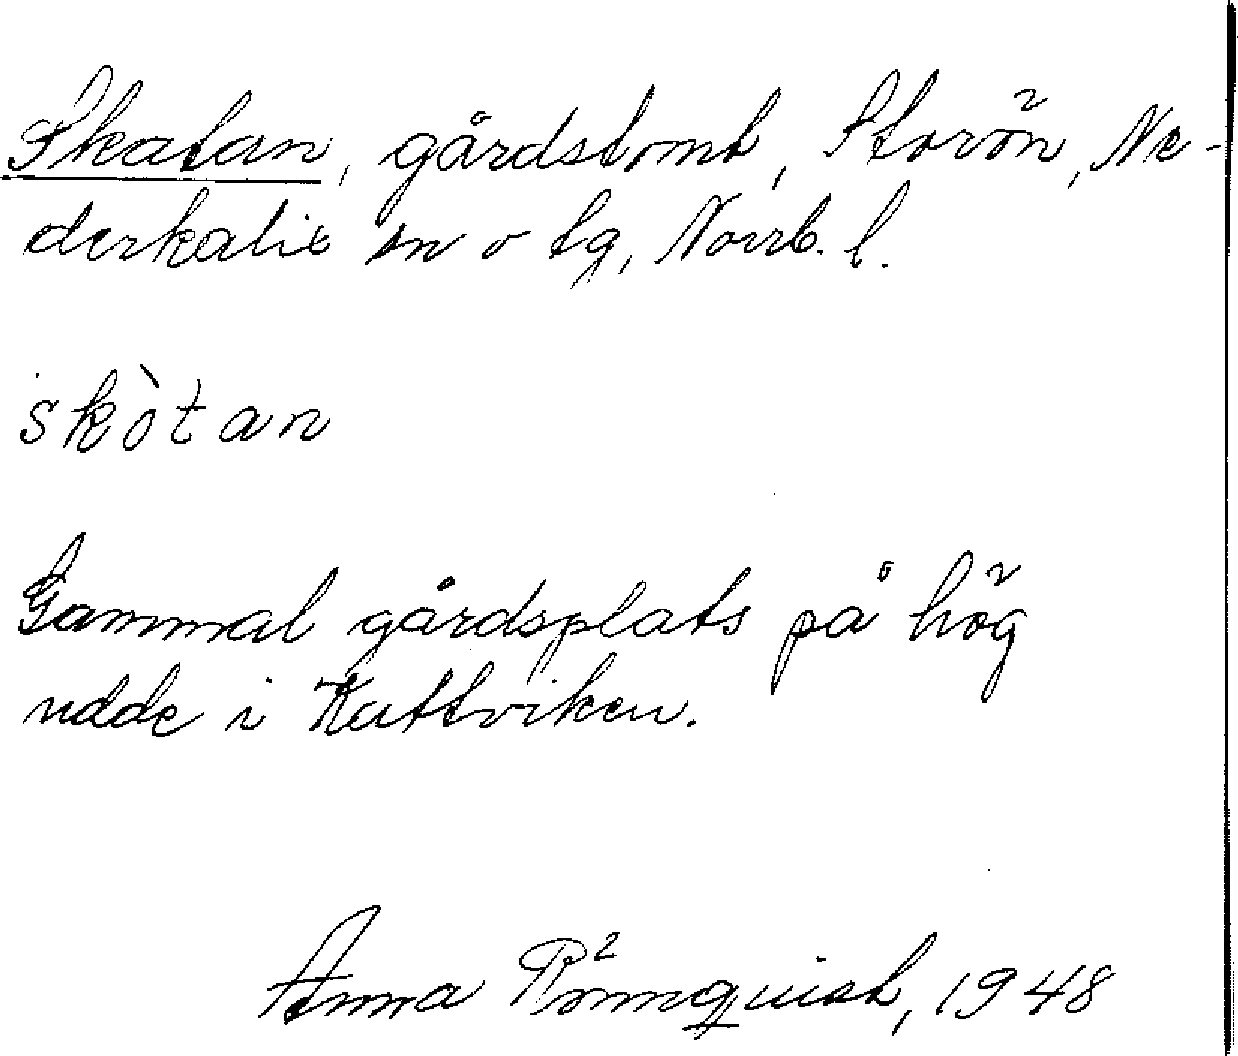 Skatan, gårdstomt, Storön, Ne-
derkalix sn o tg, Norrb. l.
skòtan
Gammal gårdsplats på hög
udde i Kattviken.
Anna Rönnquist, 1948